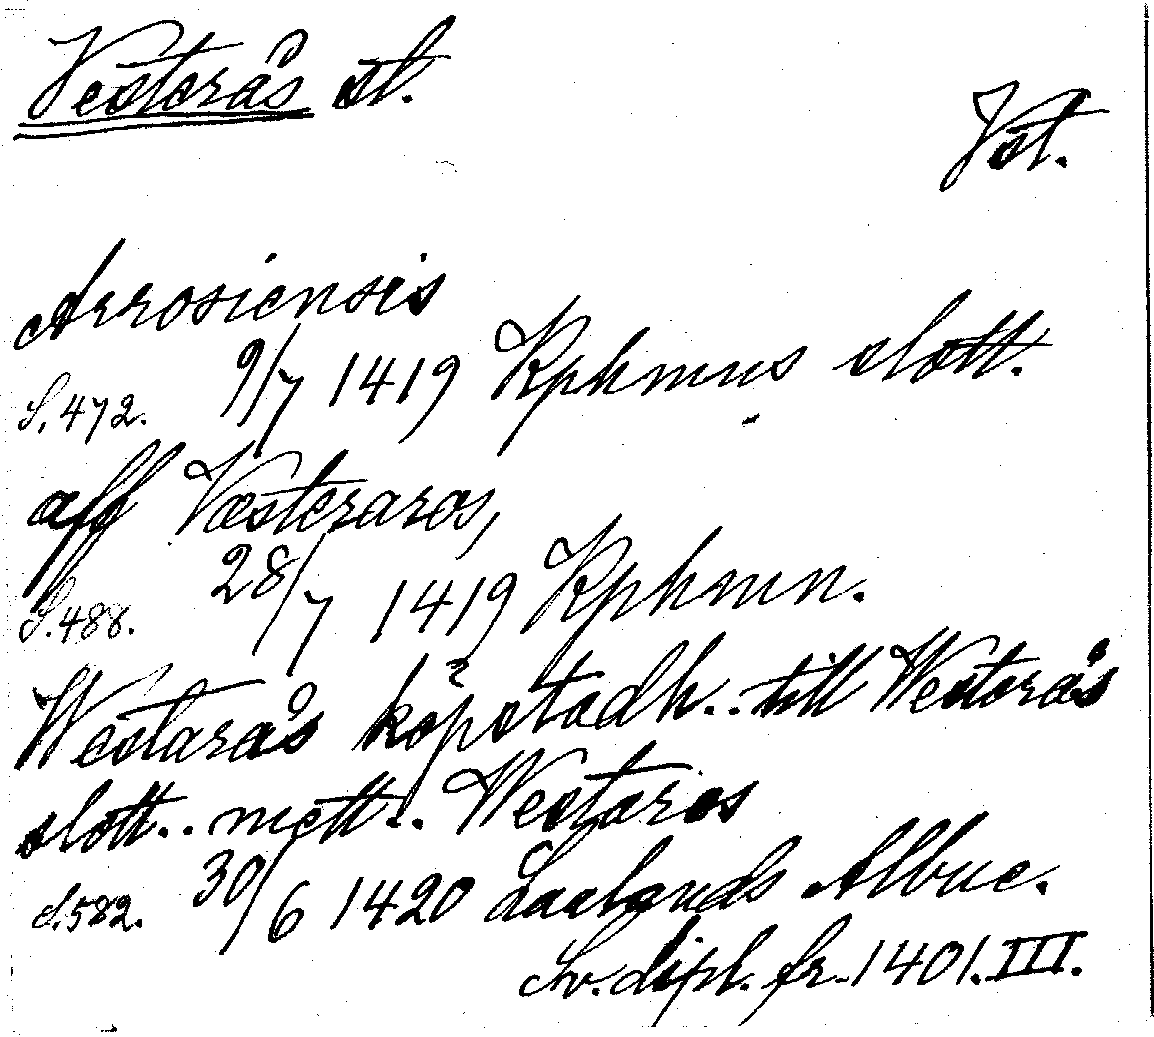 Vesterås st.
Vst.
Arosiensis
S. 472. 9/7 1419 Kphmns slott.
aff Væsteraros,
S. 488. 28/7 1419 Kphmn.
Westarás köpstadh.. till Westerås
slott.. mett.. Westaros
S. 582. 30/6 1420 Laalands Albue.
Sv. dipl. fr. 1401. III.